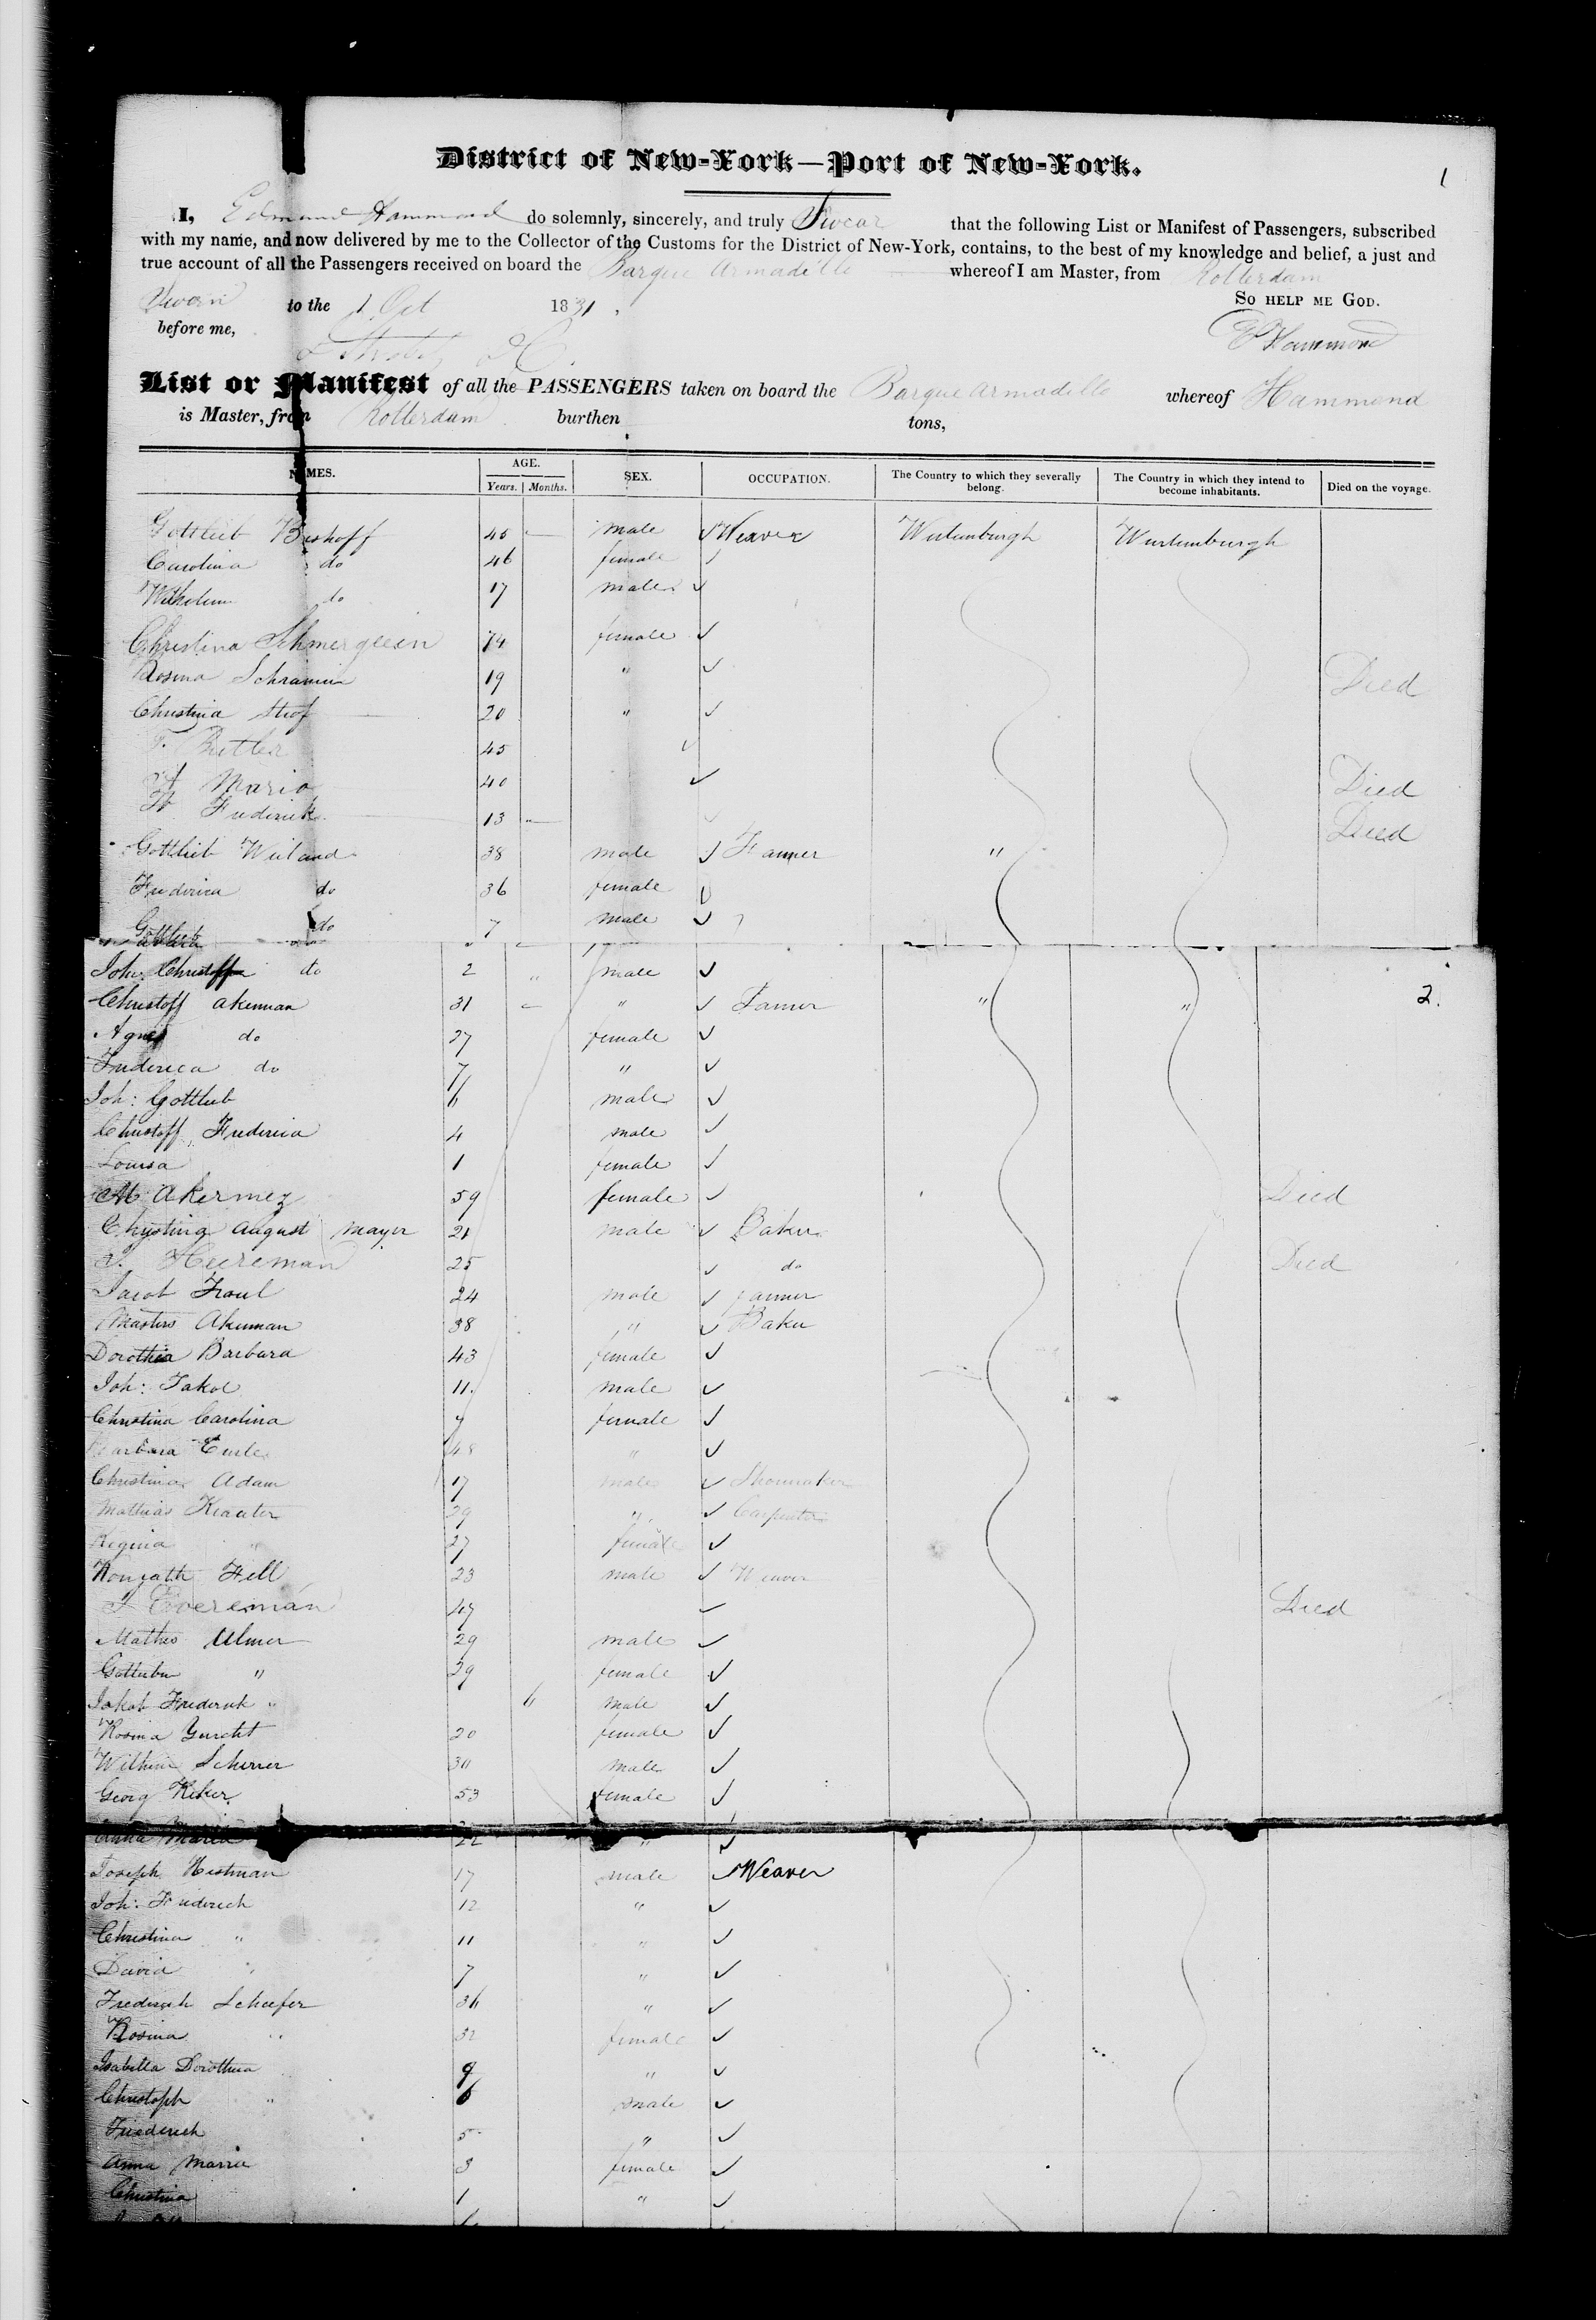 District of New-York—Port of New-York.
1
I, Edmund Hammond do solemnly, sincerely, and truly Swear that the following List or Manifest of Passengers, subscribed
with my name, and now delivered by me to the Collector of the Customs for the District of New-York, contains, to the best of my knowledge and belief, a just and
true account of all the Passengers received on board the Barque Armadillo whereof I am Master, from Rotterdam
Sworn to the 1 Oct 1831. SO HELP ME GOD.
before me, E Hammond
List or Manifest of all the PASSENGERS taken on board the Barque Armadillo whereof Hammond
is Master, from Rotterdam burthen tons,
NAMES. AGE. SEX. OCCUPATION. The Country to which they severally belong. The Country in which they intend to become inhabitants. Died on the voyage.
Years. Months.
Gottlieb Bishoff 45 male Weaver Wurtemburgh Wurtemburgh
Carolina do 46 female
Wilhelm do 17 male
Christina 74 female
Rosina Schramm 19 " Died
Christina 20 "
F. Butler 45
Maria 40 Died
Frederick 13 Died
Gottlieb Weiland 38 male Farmer "
Frederica do 36 female
Gottlieb do 7 male
Joh: do 2 " male
Christoff Akerman 31 " Farmer " " 2.
Agnes do 27 female
Frederica do 7 "
Joh: Gottlieb 6 male
Christoff Frederica 4 male
Louisa 1 female
M Akermez 59 female Died
August Mayer 21 male Baker
J. Heereman 25 do Died
Jacob 24 male farmer
Akerman 38 " Baker
Dorothea Barbara 43 female
Joh: Jakob 11. male
Christina Carolina 7 female
Barbara 48 "
Christina Adam 17 male Shoemaker
Mathias Krauter 29 " Carpenter
Regina " 27 female
Konrath Fell 23 male Weaver
J Evereman 47 Died
Mathes Ulmer 29 male
" 29 female
Jakob Frederick " 6 male
Rosina 20 female
Wilhem Scherrer 30 male
Georg 53 female
Anna Maria 22 "
Joseph 17 male Weaver
Joh: Frederich 12 "
Christina " 11 "
David " 7 "
Frederich Schaefer 36 "
Rosina " 32 female
Isabella Dorothea 9 "
Christoph " 6 male
Friederich 5 "
Anna Maria 3 female
Christina 1 "